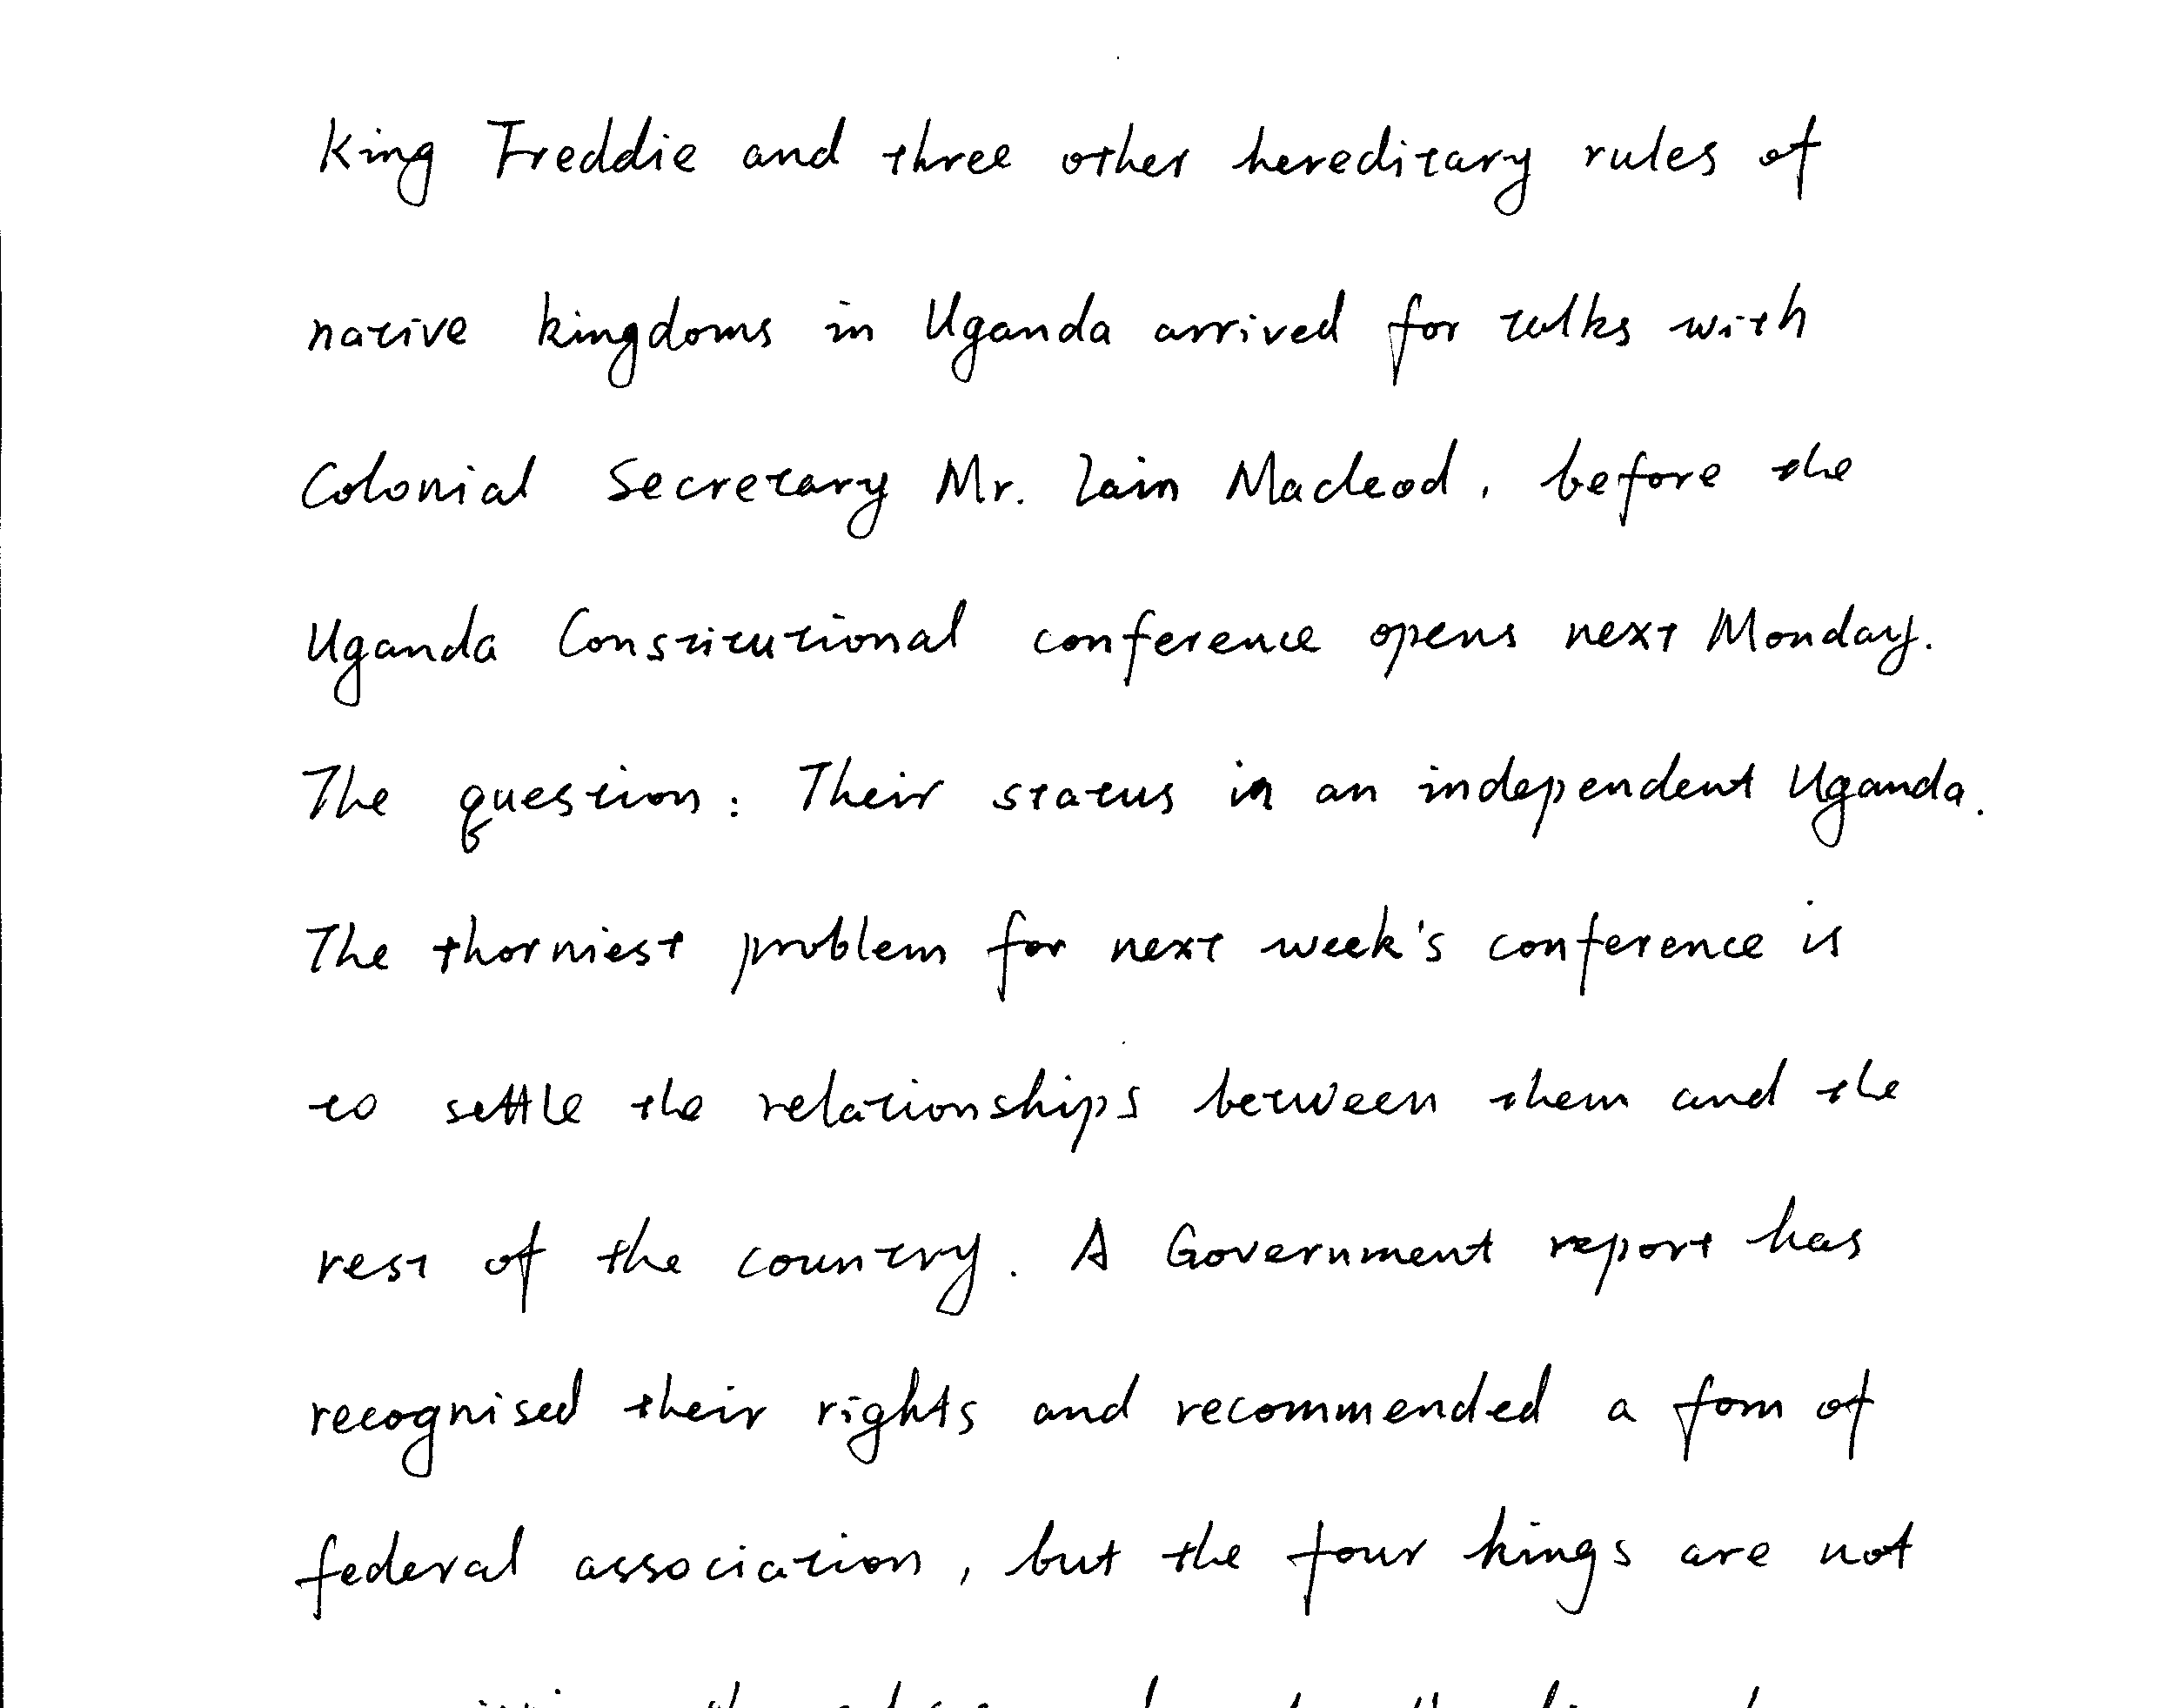 King Freddie and three other hereditary rules of
native kingdoms in Uganda arrived for talks with
Colonial Secretary Mr. Iain Macleod, before the
Uganda Constitutional conference opens next Monday.
The question: Their status in an independent Uganda.
The thorniest problem for next week's conference is
to settle the relationships between them and the
rest of the country. A Government report has
recognised their rights and recommended a fom of
federal association, but the four kings are not